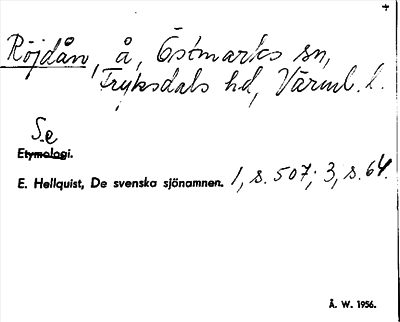 Röjdån, å, Östmarks sn,
Fryksdals hd, Värml. l.
Se
Etymologi.
E. Hellquist, De svenska sjönamnen. 1, s. 507; 3, s. 64.
Å. W. 1956.